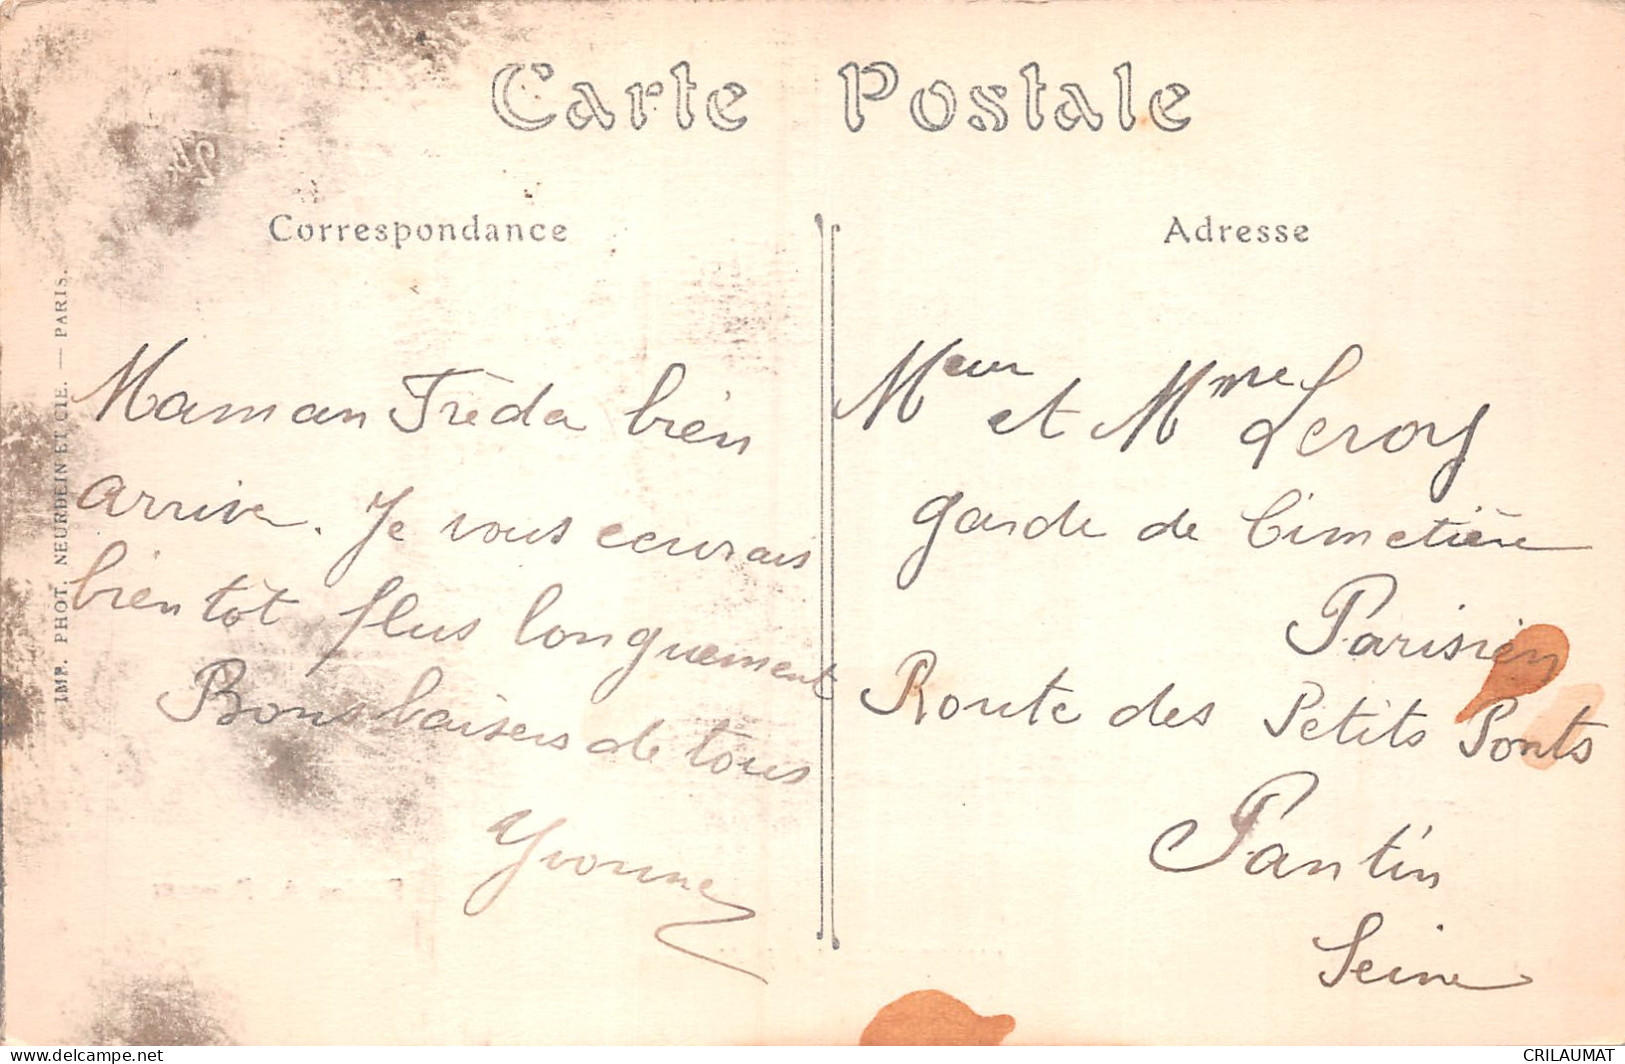 Carte Postale
Correspondance
Adresse
IMP. PHOT. NEURDEIN ET CIE. — PARIS.
Maman Frèda bien
arrive. Je vous ecurais
bientôt plus longuement
Bons baisers de tous
Yvonne
Meur et Mme Leroy
garde de Cimetière
Parisien
Route des Petits Ponts
Pantin
Seine
CRILAUMAT